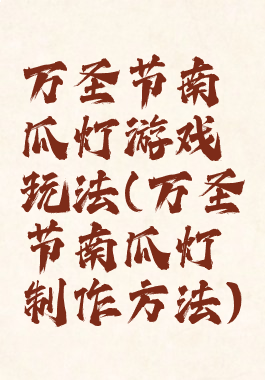 万圣节南
瓜灯游戏
玩法(万圣
节南瓜灯
制作方法)